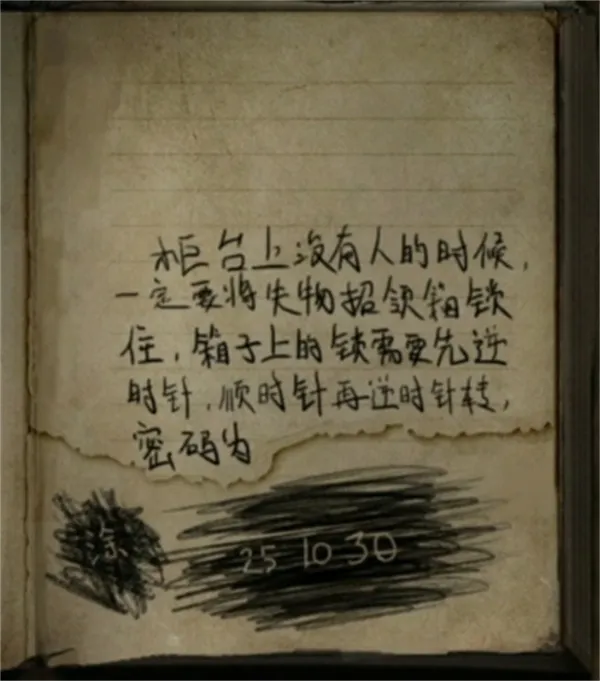 柜台上没有人的时候，
一定要将失物招领箱锁
住，箱子上的锁需要先逆
时针，顺时针再逆时针转，
密码为
涂
25 10 30